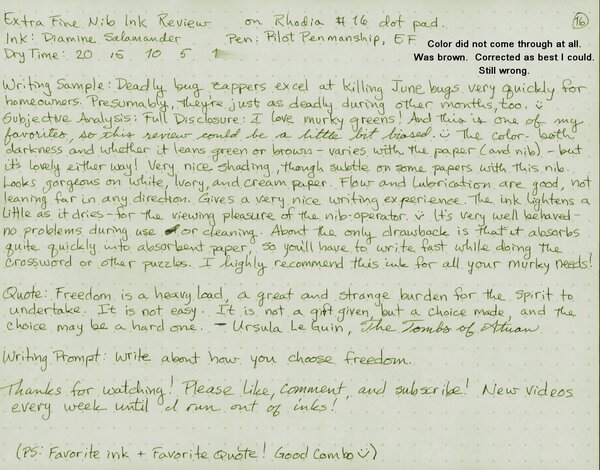 Extra Fine Nib Ink Review on Rhodia #16 dot pad. 16
Ink: Diamine Salamander Pen: Pilot Penmanship, EF
Dry Time: 20 15 10 5 1
Color did not come through at all.
Was brown. Corrected as best I could.
Still wrong.
Writing Sample: Deadly bug zappers excel at killing June bugs very quickly for
homeowners. Presumably, they're just as deadly during other months, too. :)
Subjective Analysis: Full Disclosure: I love murky greens! And this is one of my
favorites, so this review could be a little bit biased. :) The color - both
darkness and whether it leans green or brown - varies with the paper (and nib) - but
it's lovely either way! Very nice shading, though subtle on some papers with this nib.
Looks gorgeous on white, ivory, and cream paper. Flow and lubrication are good, not
leaning far in any direction. Gives a very nice writing experience. The ink lightens a
little as it dries - for the viewing pleasure of the nib-operator. :) It's very well behaved -
no problems during use or cleaning. About the only drawback is that it absorbs
quite quickly into absorbent paper, so you'll have to write fast while doing the
crossword or other puzzles. I highly recommend this ink for all your murky needs!
Quote: Freedom is a heavy load, a great and strange burden for the spirit to
undertake. It is not easy. It is not a gift given, but a choice made, and the
choice may be a hard one. - Ursula Le Guin, The Tombs of Atuan
Writing Prompt: Write about how you choose freedom.
Thanks for watching! Please like, comment, and subscribe! New videos
every week until I run out of inks!
(PS: Favorite ink + Favorite Quote! Good Combo :))